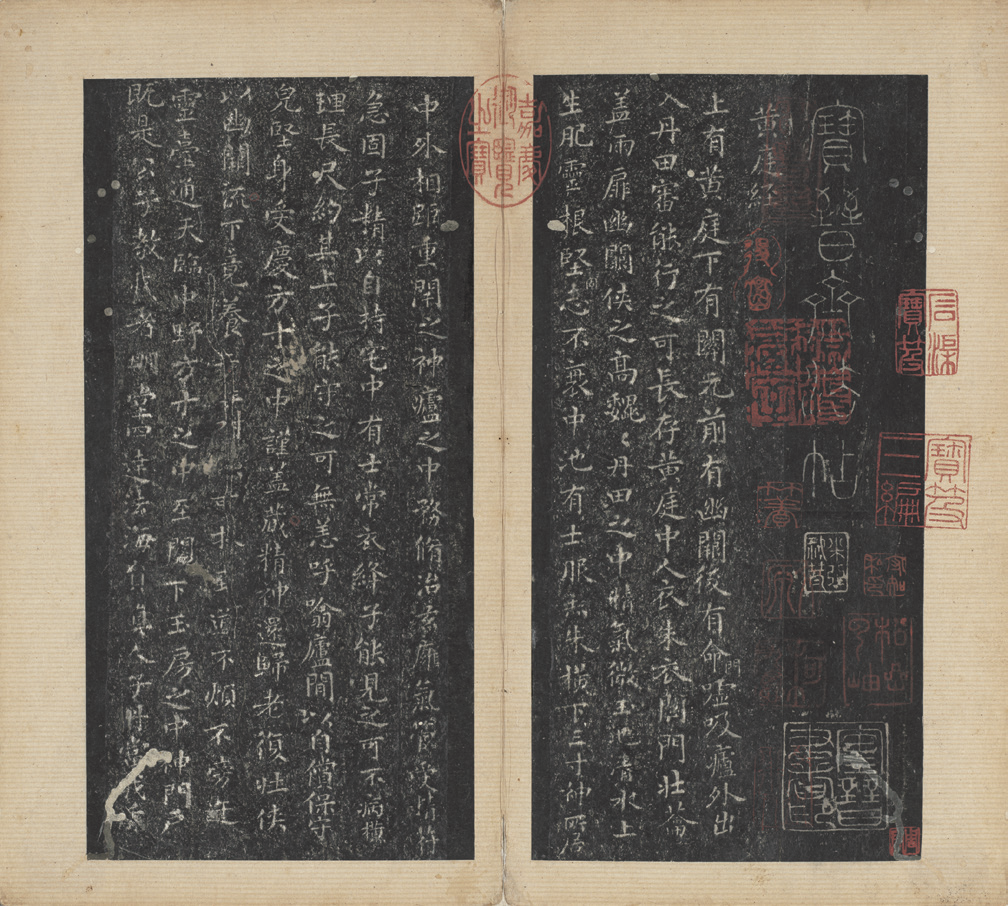 寶晉齋法帖
黃庭經
上有黃庭下有關元前有幽關後有命門噓吸廬外出
入丹田審能行之可長存黃庭中人衣朱衣關門壯籥
蓋兩扉幽關俠之高魏〻丹田之中精氣微玉池清水上
生肥靈根堅志不衰中池有士服赤朱橫下三寸神所居
中外相距重閉之神廬之中務脩治玄廱氣管受精符
急固子精以自持宅中有士常衣絳子能見之可不病橫
理長尺約其上子能守之可無恙呼噏廬間以自償保守
兒堅身受慶方寸之中謹蓋藏精神還歸老復壯俠
以幽闕流下竟養不煩不
靈臺通天臨中野方寸之中至關下玉房之中神門戶
既是公子教我者明堂四達法海有真人子丹當
嘉慶御覽之寶